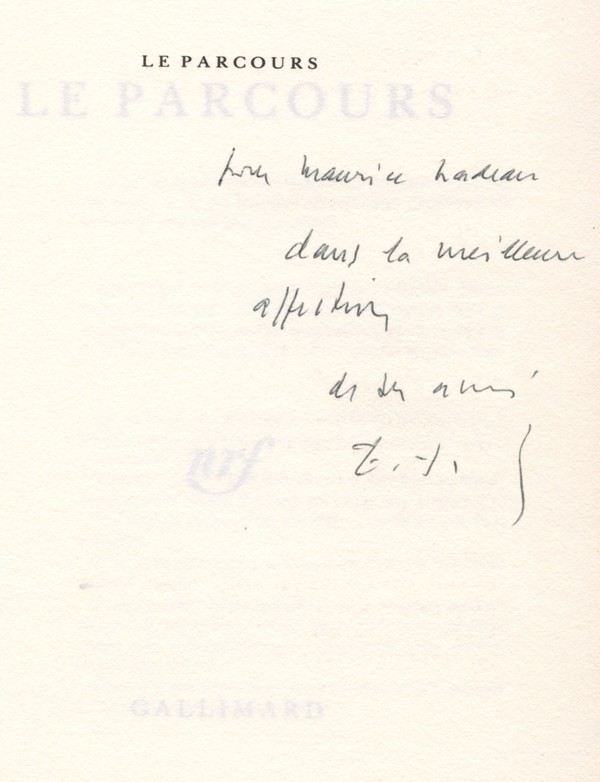 LE PARCOURS
LE PARCOURS
pour Maurice Nadeau
dans la meilleure
affection
de son ami
nrf
GALLIMARD